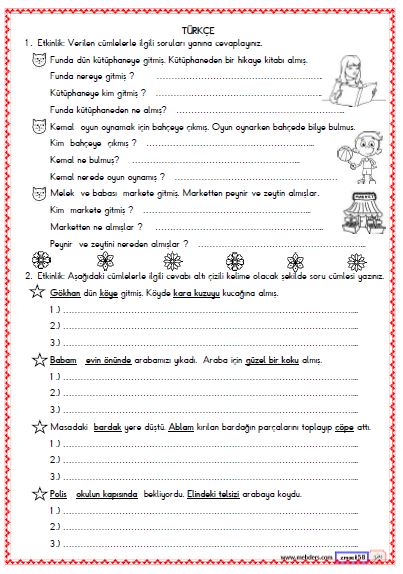 TÜRKÇE
1. Etkinlik: Verilen cümlelerle ilgili soruları yanına cevaplayınız.
Funda dün kütüphaneye gitmiş. Kütüphaneden bir hikaye kitabı almış.
Funda nereye gitmiş ? ……………………………………………..
Kütüphaneye kim gitmiş ? ……………………………………………..
Funda kütüphaneden ne almış? ……………………………………………..
Kemal oyun oynamak için bahçeye çıkmış. Oyun oynarken bahçede bilye bulmuş.
Kim bahçeye çıkmış ? ……………………………………………..
Kemal ne bulmuş? ……………………………………………..
Kemal nerede oyun oynamış ? ……………………………………………..
Melek ve babası markete gitmiş. Marketten peynir ve zeytin almışlar.
MARKET
Kim markete gitmiş ? ……………………………………………..
Marketten ne almışlar ? ……………………………………………..
Peynir ve zeytini nereden almışlar ? ……………………………………………..
2. Etkinlik: Aşağıdaki cümlelerle ilgili cevabı altı çizili kelime olacak şekilde soru cümlesi yazınız.
Gökhan dün köye gitmiş. Köyde kara kuzuyu kucağına almış.
1.) ……………………………………………………………………………………
2.) ……………………………………………………………………………………
3.) ……………………………………………………………………………………
Babam evin önünde arabamızı yıkadı. Araba için güzel bir koku almış.
1.) ……………………………………………………………………………………
2.) ……………………………………………………………………………………
3.) ……………………………………………………………………………………
Masadaki bardak yere düştü. Ablam kırılan bardağın parçalarını toplayıp çöpe attı.
1.) ……………………………………………………………………………………
2.) ……………………………………………………………………………………
3.) ……………………………………………………………………………………
Polis okulun kapısında bekliyordu. Elindeki telsizi arabaya koydu.
1.) ……………………………………………………………………………………
2.) ……………………………………………………………………………………
3.) ……………………………………………………………………………………
www.mebders.com